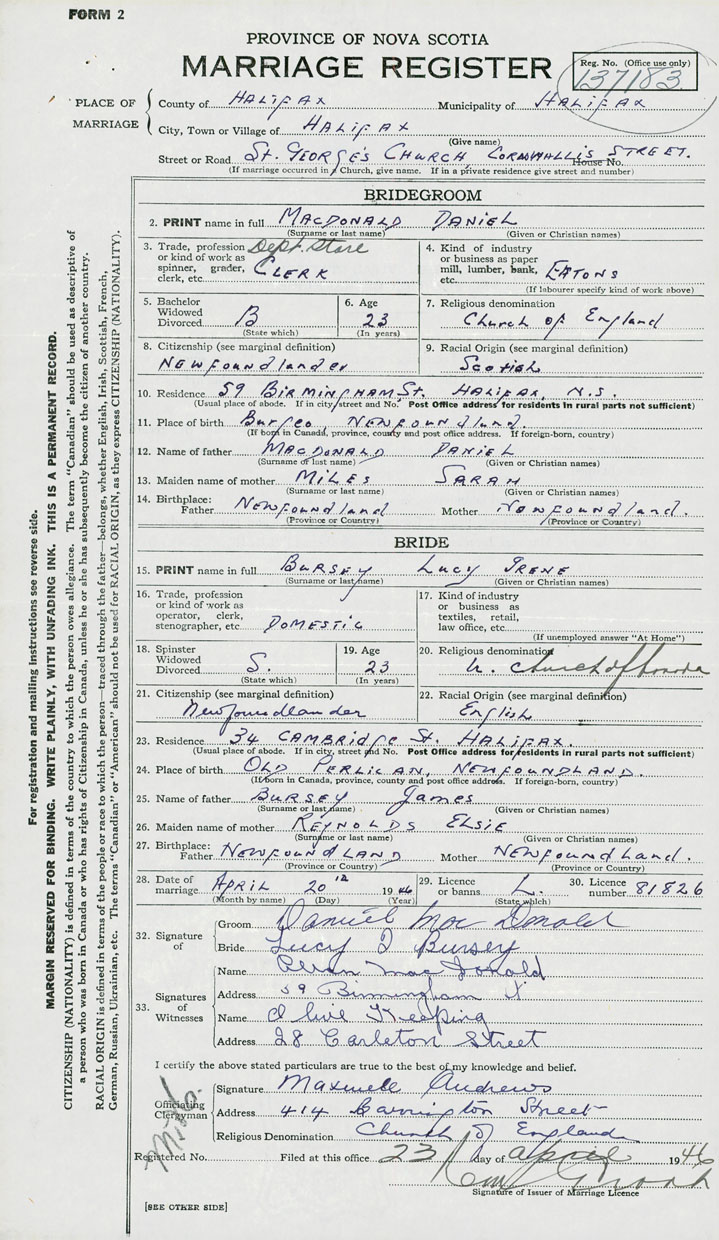 FORM 2
PROVINCE OF NOVA SCOTIA
MARRIAGE REGISTER
Reg. No. (Office use only)
137183
PLACE OF MARRIAGE
County of HALIFAX Municipality of HALIFAX
City, Town or Village of HALIFAX
(Give name)
Street or Road ST. GEORGE'S CHURCH, CORNWALLIS STREET.
House No.
(If marriage occurred in Church, give name. If in a private residence give street and number)
BRIDEGROOM
2. PRINT name in full MACDONALD DANIEL
(Surname or last name) (Given or Christian names)
3. Trade, profession or kind of work as spinner, grader, clerk, etc. Dept. Store CLERK
4. Kind of industry or business as paper mill, lumber, bank, etc. EATONS
(If labourer specify kind of work above)
5. Bachelor Widowed Divorced B
(State which)
6. Age 23
(In years)
7. Religious denomination Church of England
8. Citizenship (see marginal definition) NEWFoundlander
9. Racial Origin (see marginal definition) Scotish
10. Residence 59 BIRMINGHAM St. HALIFAX, N.S.
(Usual place of abode. If in city, street and No. Post Office address for residents in rural parts not sufficient)
11. Place of birth Burgeo NEWFOUNDland.
(If born in Canada, province, county and post office address. If foreign-born, country)
12. Name of father MACDONALD DANIEL
(Surname or last name) (Given or Christian names)
13. Maiden name of mother MILES SARAH
(Surname or last name) (Given or Christian names)
14. Birthplace: Father NEWFOUNDland Mother NEWFOUNDland.
(Province or Country) (Province or Country)
BRIDE
15. PRINT name in full BURSEY LUCY IRENE
(Surname or last name) (Given or Christian names)
16. Trade, profession or kind of work as operator, clerk, stenographer, etc. DOMESTIC
17. Kind of industry or business as textiles, retail, law office, etc.
(If unemployed answer "At Home")
18. Spinster Widowed Divorced S.
(State which)
19. Age 23
(In years)
20. Religious denomination U. Church of Canada
21. Citizenship (see marginal definition) Newfoundlander
22. Racial Origin (see marginal definition) English
23. Residence 34 CAMBRIDGE St. HALIFAX.
(Usual place of abode. If in city, street and No. Post Office address for residents in rural parts not sufficient)
24. Place of birth OLD PERLICAN, NEWFOUNDLAND.
(If born in Canada, province, county and post office address. If foreign-born, country)
25. Name of father BURSEY James
(Surname or last name) (Given or Christian names)
26. Maiden name of mother REYNOLDS ELSIE
(Surname or last name) (Given or Christian names)
27. Birthplace: Father NEWFOUNDLAND Mother NEWFOUNDLAND.
(Province or Country) (Province or Country)
28. Date of marriage APRIL 20th 1946
(Month by name) (Day) (Year)
29. Licence or banns L.
(State which)
30. Licence number 81826
32. Signature of
Groom Daniel MacDonald
Bride Lucy I Bursey
33. Signatures of Witnesses
Name MacDonald
Address 59 Birmingham St
Name Olive Keeping
Address 28 Carleton Street
I certify the above stated particulars are true to the best of my knowledge and belief.
Officiating Clergyman
Signature Maxwell Andrews
Address 414 Barrington Street
Religious Denomination Church of England
Registered No. Filed at this office 23 day of april 1946
Signature of Issuer of Marriage Licence
[SEE OTHER SIDE]
For registration and mailing instructions see reverse side.
MARGIN RESERVED FOR BINDING. WRITE PLAINLY, WITH UNFADING INK. THIS IS A PERMANENT RECORD.
CITIZENSHIP (NATIONALITY) is defined in terms of the country to which the person owes allegiance. The term "Canadian" should be used as descriptive of
a person who was born in Canada or who has rights of Citizenship in Canada, unless he or she has subsequently become the citizen of another country.
RACIAL ORIGIN is defined in terms of the people or race to which the person—traced through the father—belongs, whether English, Irish, Scottish, French,
German, Russian, Ukrainian, etc. The terms "Canadian" or "American" should not be used for RACIAL ORIGIN, as they express CITIZENSHIP (NATIONALITY).